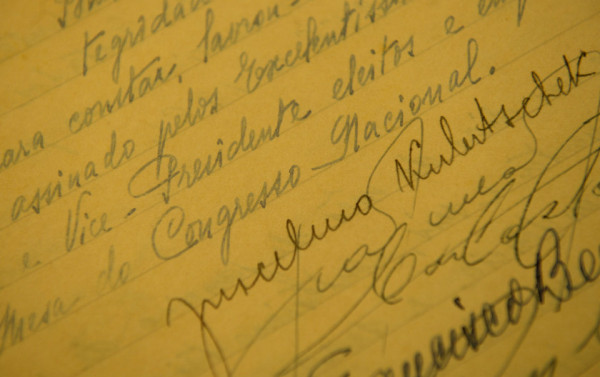 tegridad
para constar, lavrou-
assinado pelos Excelentíssim
e Vice-Presidente eleitos e emp
Mesa do Congresso Nacional.
Juscelino Kubitschek
Francisco Be